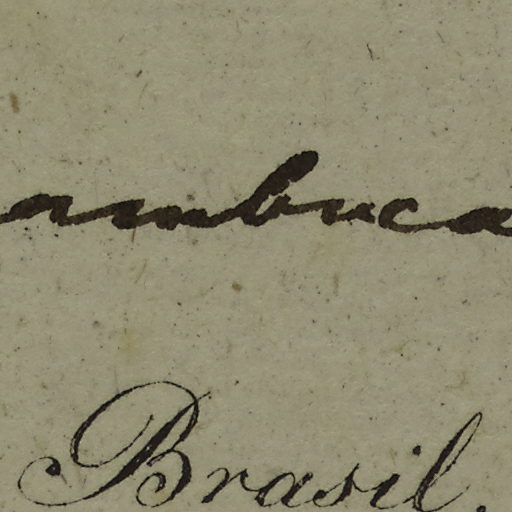 ambuca
Brasil.